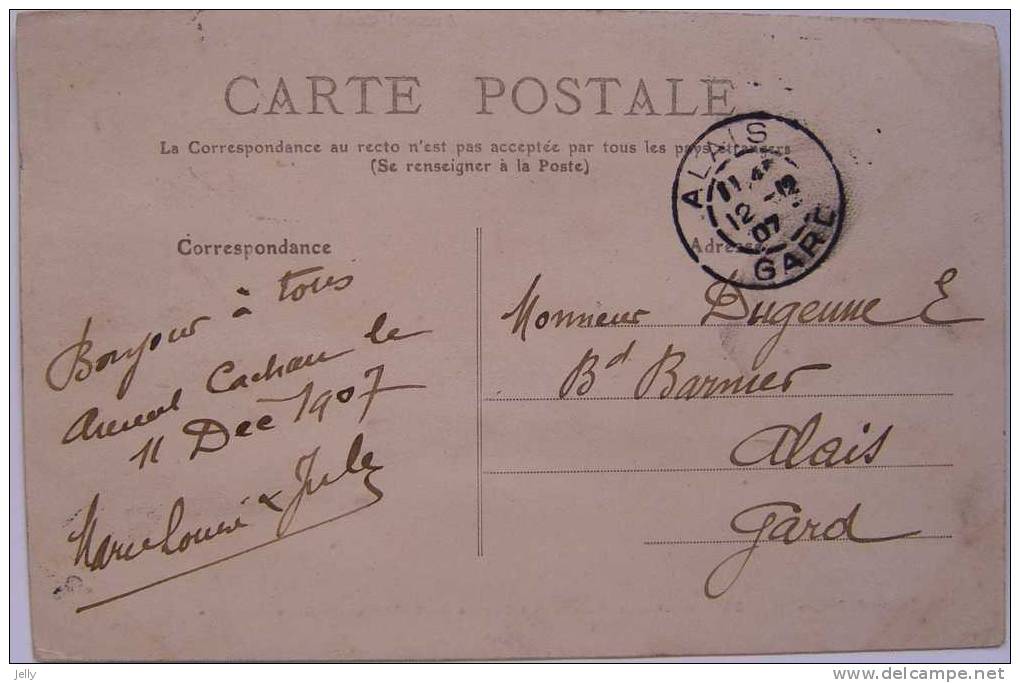 CARTE POSTALE
La Correspondance au recto n'est pas acceptée par tous les pays étrangers
(Se renseigner à la Poste)
ALAIS
12 -12
07
GARD
Correspondance
Adresse
Bonjour à tous
Cachan le
11 Dec 1907
Marie Louise & Jules
Monsieur Dugenne E
Bd Barnier
Alais
Gard
jelly
www.delcampe.net